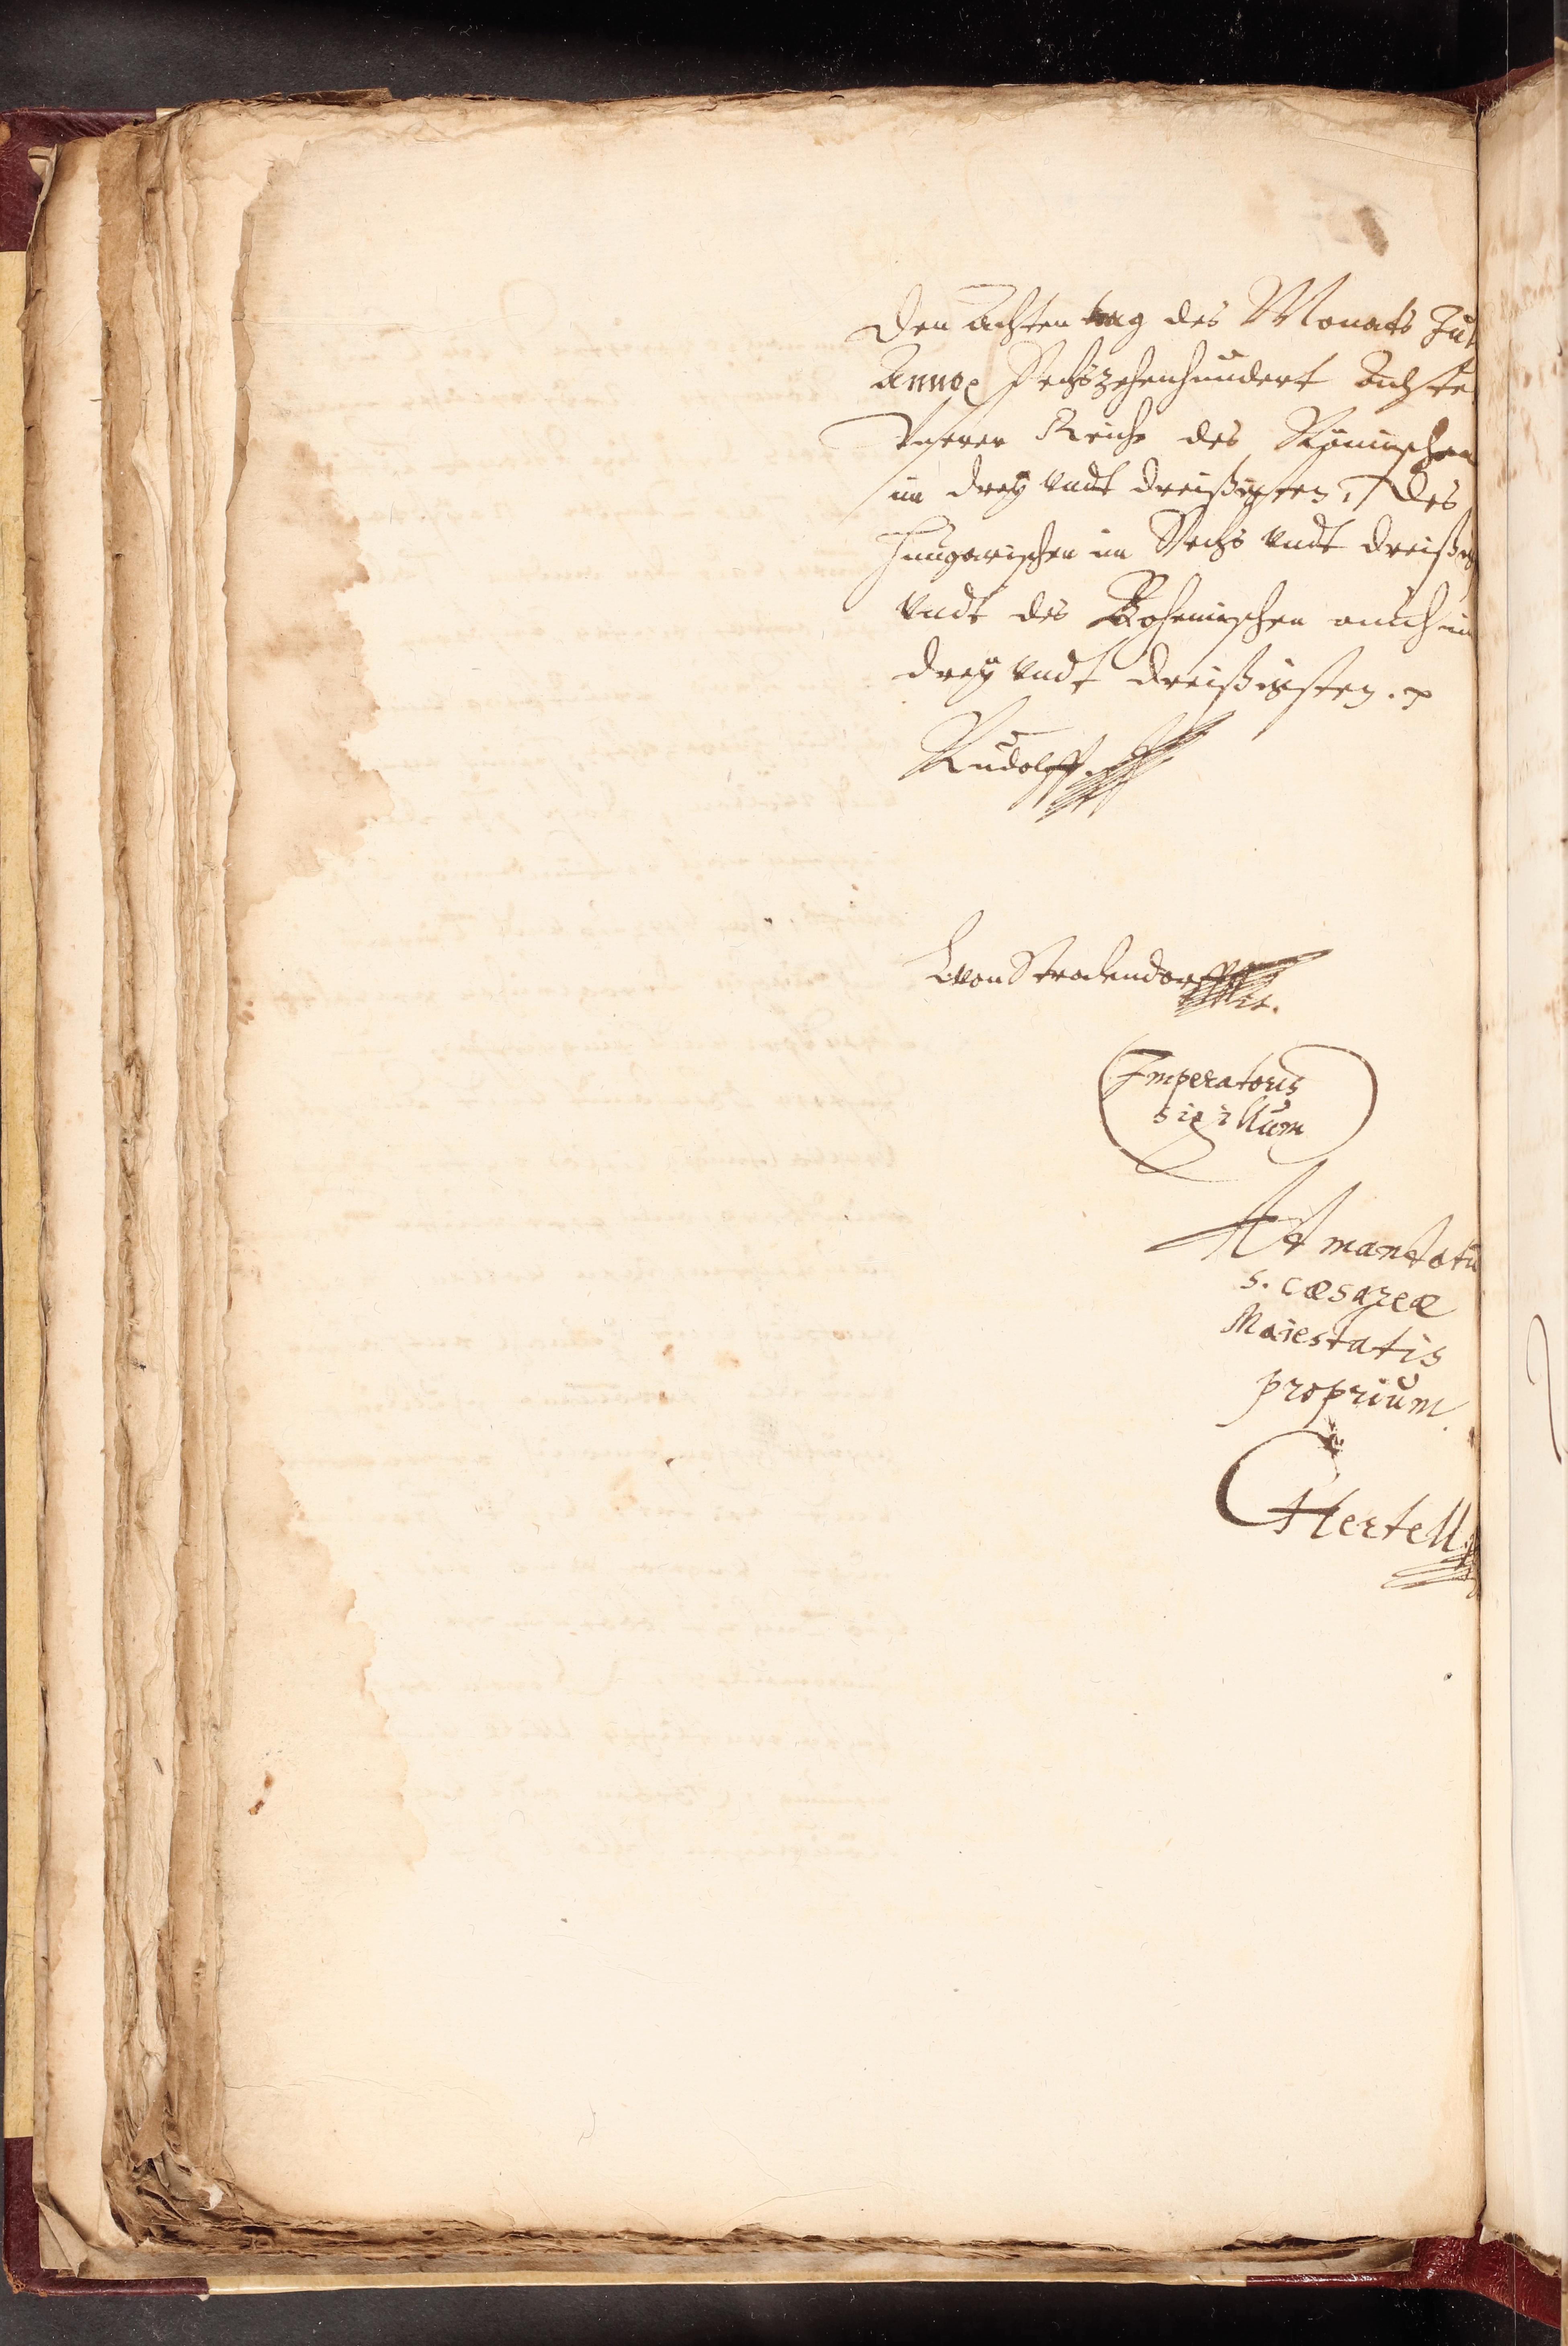 Den Achten tag des Monats Jul
Anno Sechszehenhundert Achte
Vnserer Reiche des Römischen
im drey vndt dreißigsten, des
Hungarischen im Sechs vndt dreißig
vndt des Bohemischen auch im
drey vndt dreißigsten.
Rudolff.
L von Stralendorff
Imperatoris
sigillum
Ad mandatu
s. cæsareæ
Maiestatis
proprium.
Hertell